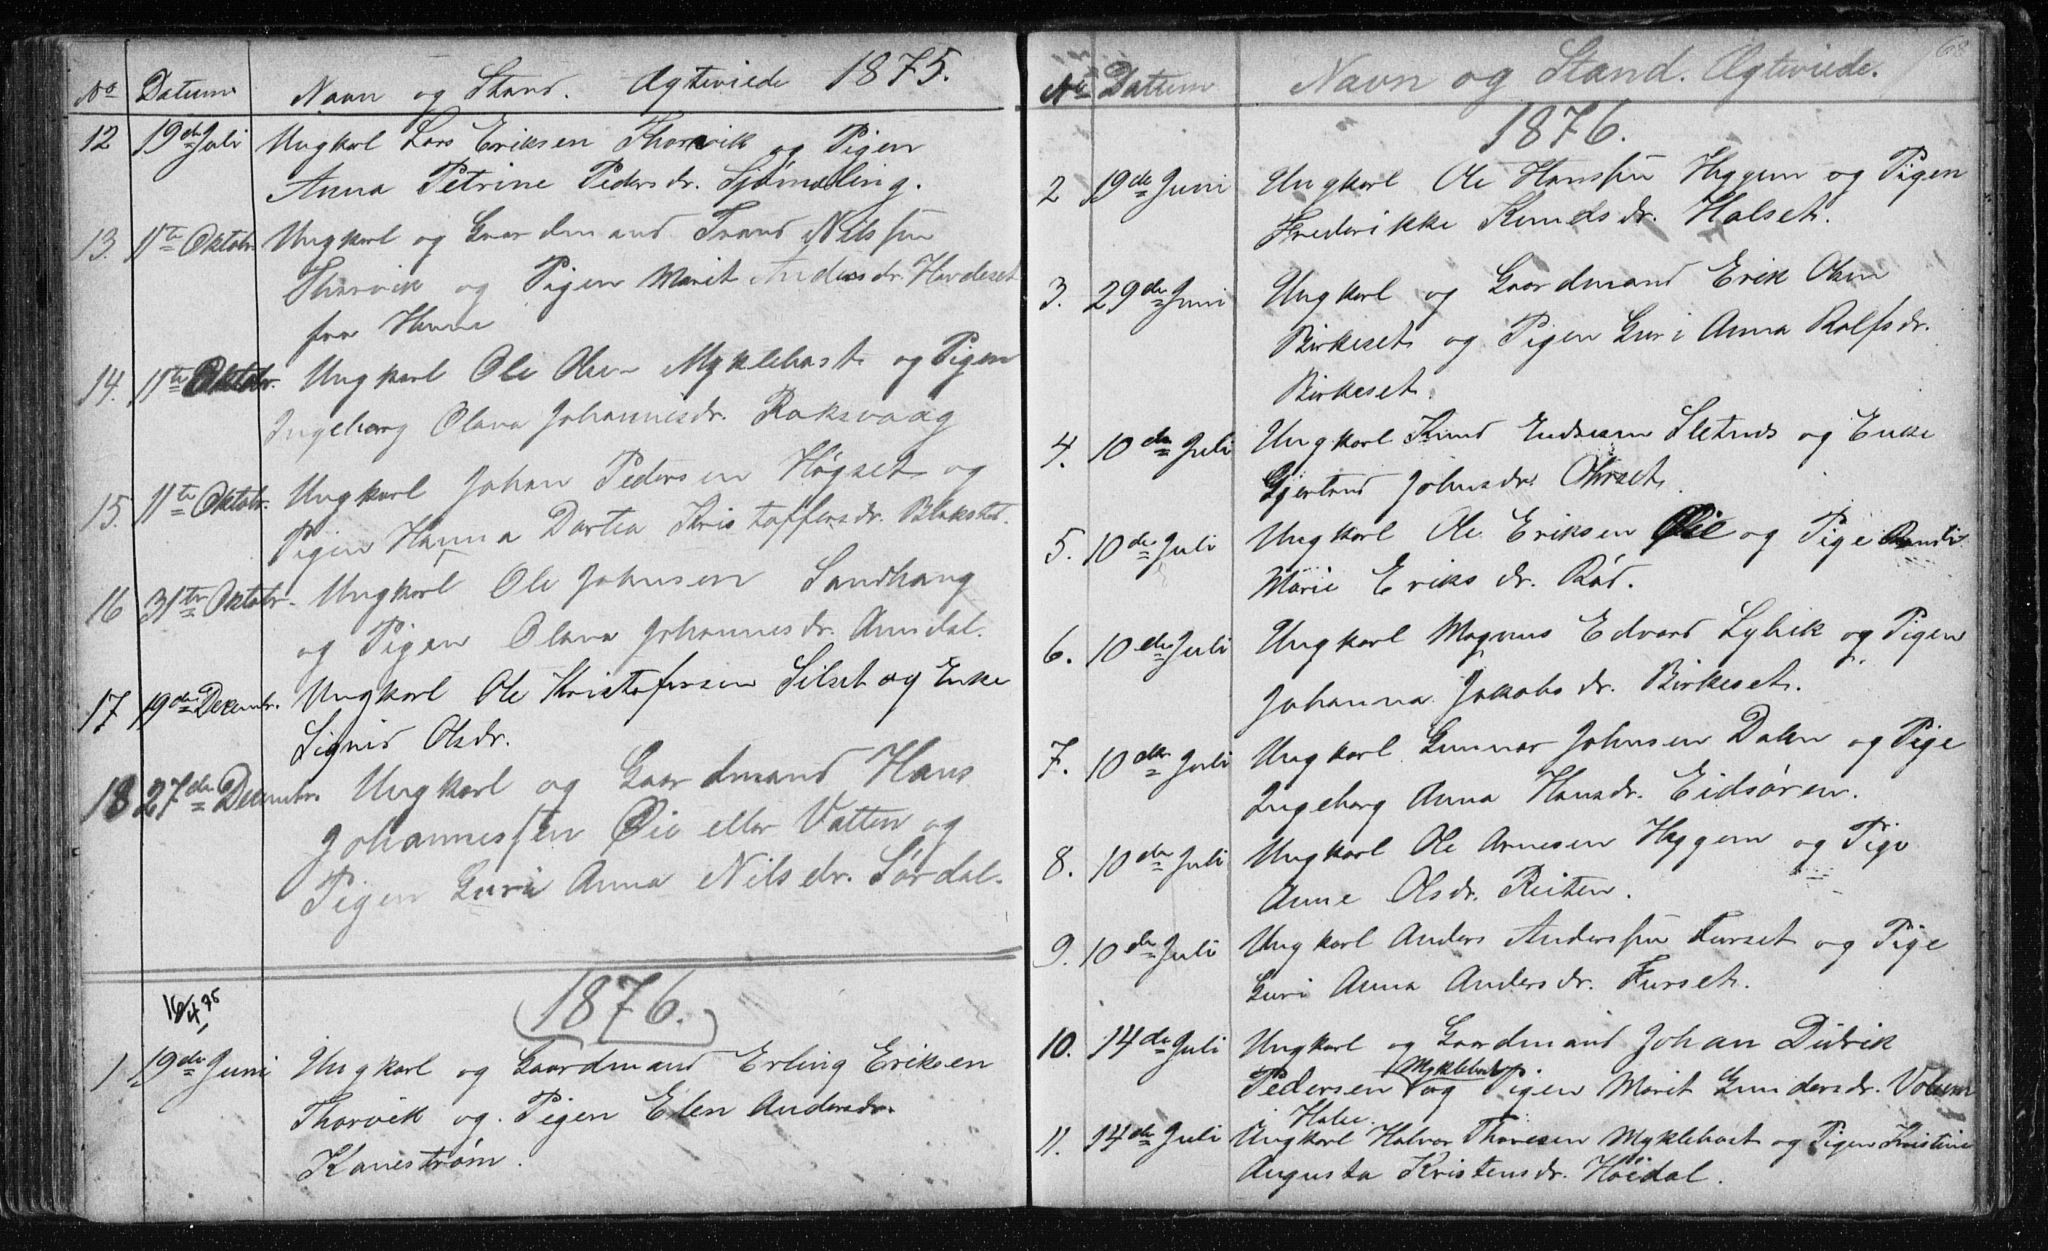 No Datum Navn og Stand. Ægteviede 1875.
12 19de Juli Ungkarl Lars Eriksen Thorvik og Pigen
Anna Petrine Pedersdr. Sjømæling.
13. 11te Oktobr. Ungkarl og Gaardmand Trand Nilssen
Thorvik og Pigen Marit Andersdr. Hardeset
fra
14. 11te Oktobr. Ungkarl Ole Olsen Myklebost og Pigen
Ingeborg Olava Johannesdr. Raksvaag
15. 11te Oktobr. Ungkarl Johan Pedersen Høgset og
Pigen Hanna Dortea Kristoffersdr. Blakstad.
16 31te Oktobr. Ungkarl Ole Johnsen Sandhaug
og Pigen Olava Johannesdr. Aasdal.
17 19de Decembr. Ungkarl Ole Kristofersen Silset og Enke
Signid Olsdr.
18 27de Decembr. Ungkarl og Gaardmand Hans
Johannessen Øie eller Vatten og
Pigen Guri Anna Nilsdr. Sørdal.
16/4 75
1876.
1. 19de Juni Ungkarl og Gaardmand Erling Eriksen
Thorvik og Pigen Elen Andersdr.
Kanestrøm.
68
No Datum Navn og Stand. Ægteviede.
1876.
2 19de Juni Ungkarl Ole Hanssen Heggem og Pigen
Frederikke Knudsdr. Halset.
3. 29de Juni Ungkarl og Gaardmand Erik Olsen
Birkeset og Pigen Guri Anna Rolfsdr.
Birkeset.
4. 10de Juli Ungkarl Knud Endresen Sletnes og Enke
Gjertrud Johnsdr. Ohrset.
5. 10de Juli Ungkarl Ole Eriksen Øie og Pige Randi
Marie Eriksdr. Rød.
6. 10de Juli Ungkarl Magnus Edvard Lybik og Pigen
Johanna Jakobsdr. Birkeset.
7. 10de Juli Ungkarl Gunnar Johnsen Dalen og Pige
Ingeborg Anna Hansdr. Eidsøren.
8. 10de Juli Ungkarl Ole Arnesen Heggem og Pige
Anne Olsdr. Reiten.
9. 10de Juli Ungkarl Anders Anderssen Furset og Pige
Guri Anna Andersdr. Furset.
10. 14de Juli Ungkarl og Gaardmand Johan Didrik
Myklebost.
Pedersen og Pigen Marit Gundersdr. Volum
i Halse.
11. 14de Juli Ungkarl Halvor Thoresen Myklebost og Pigen Kristine
Augusta Kristensdr. Høidal.